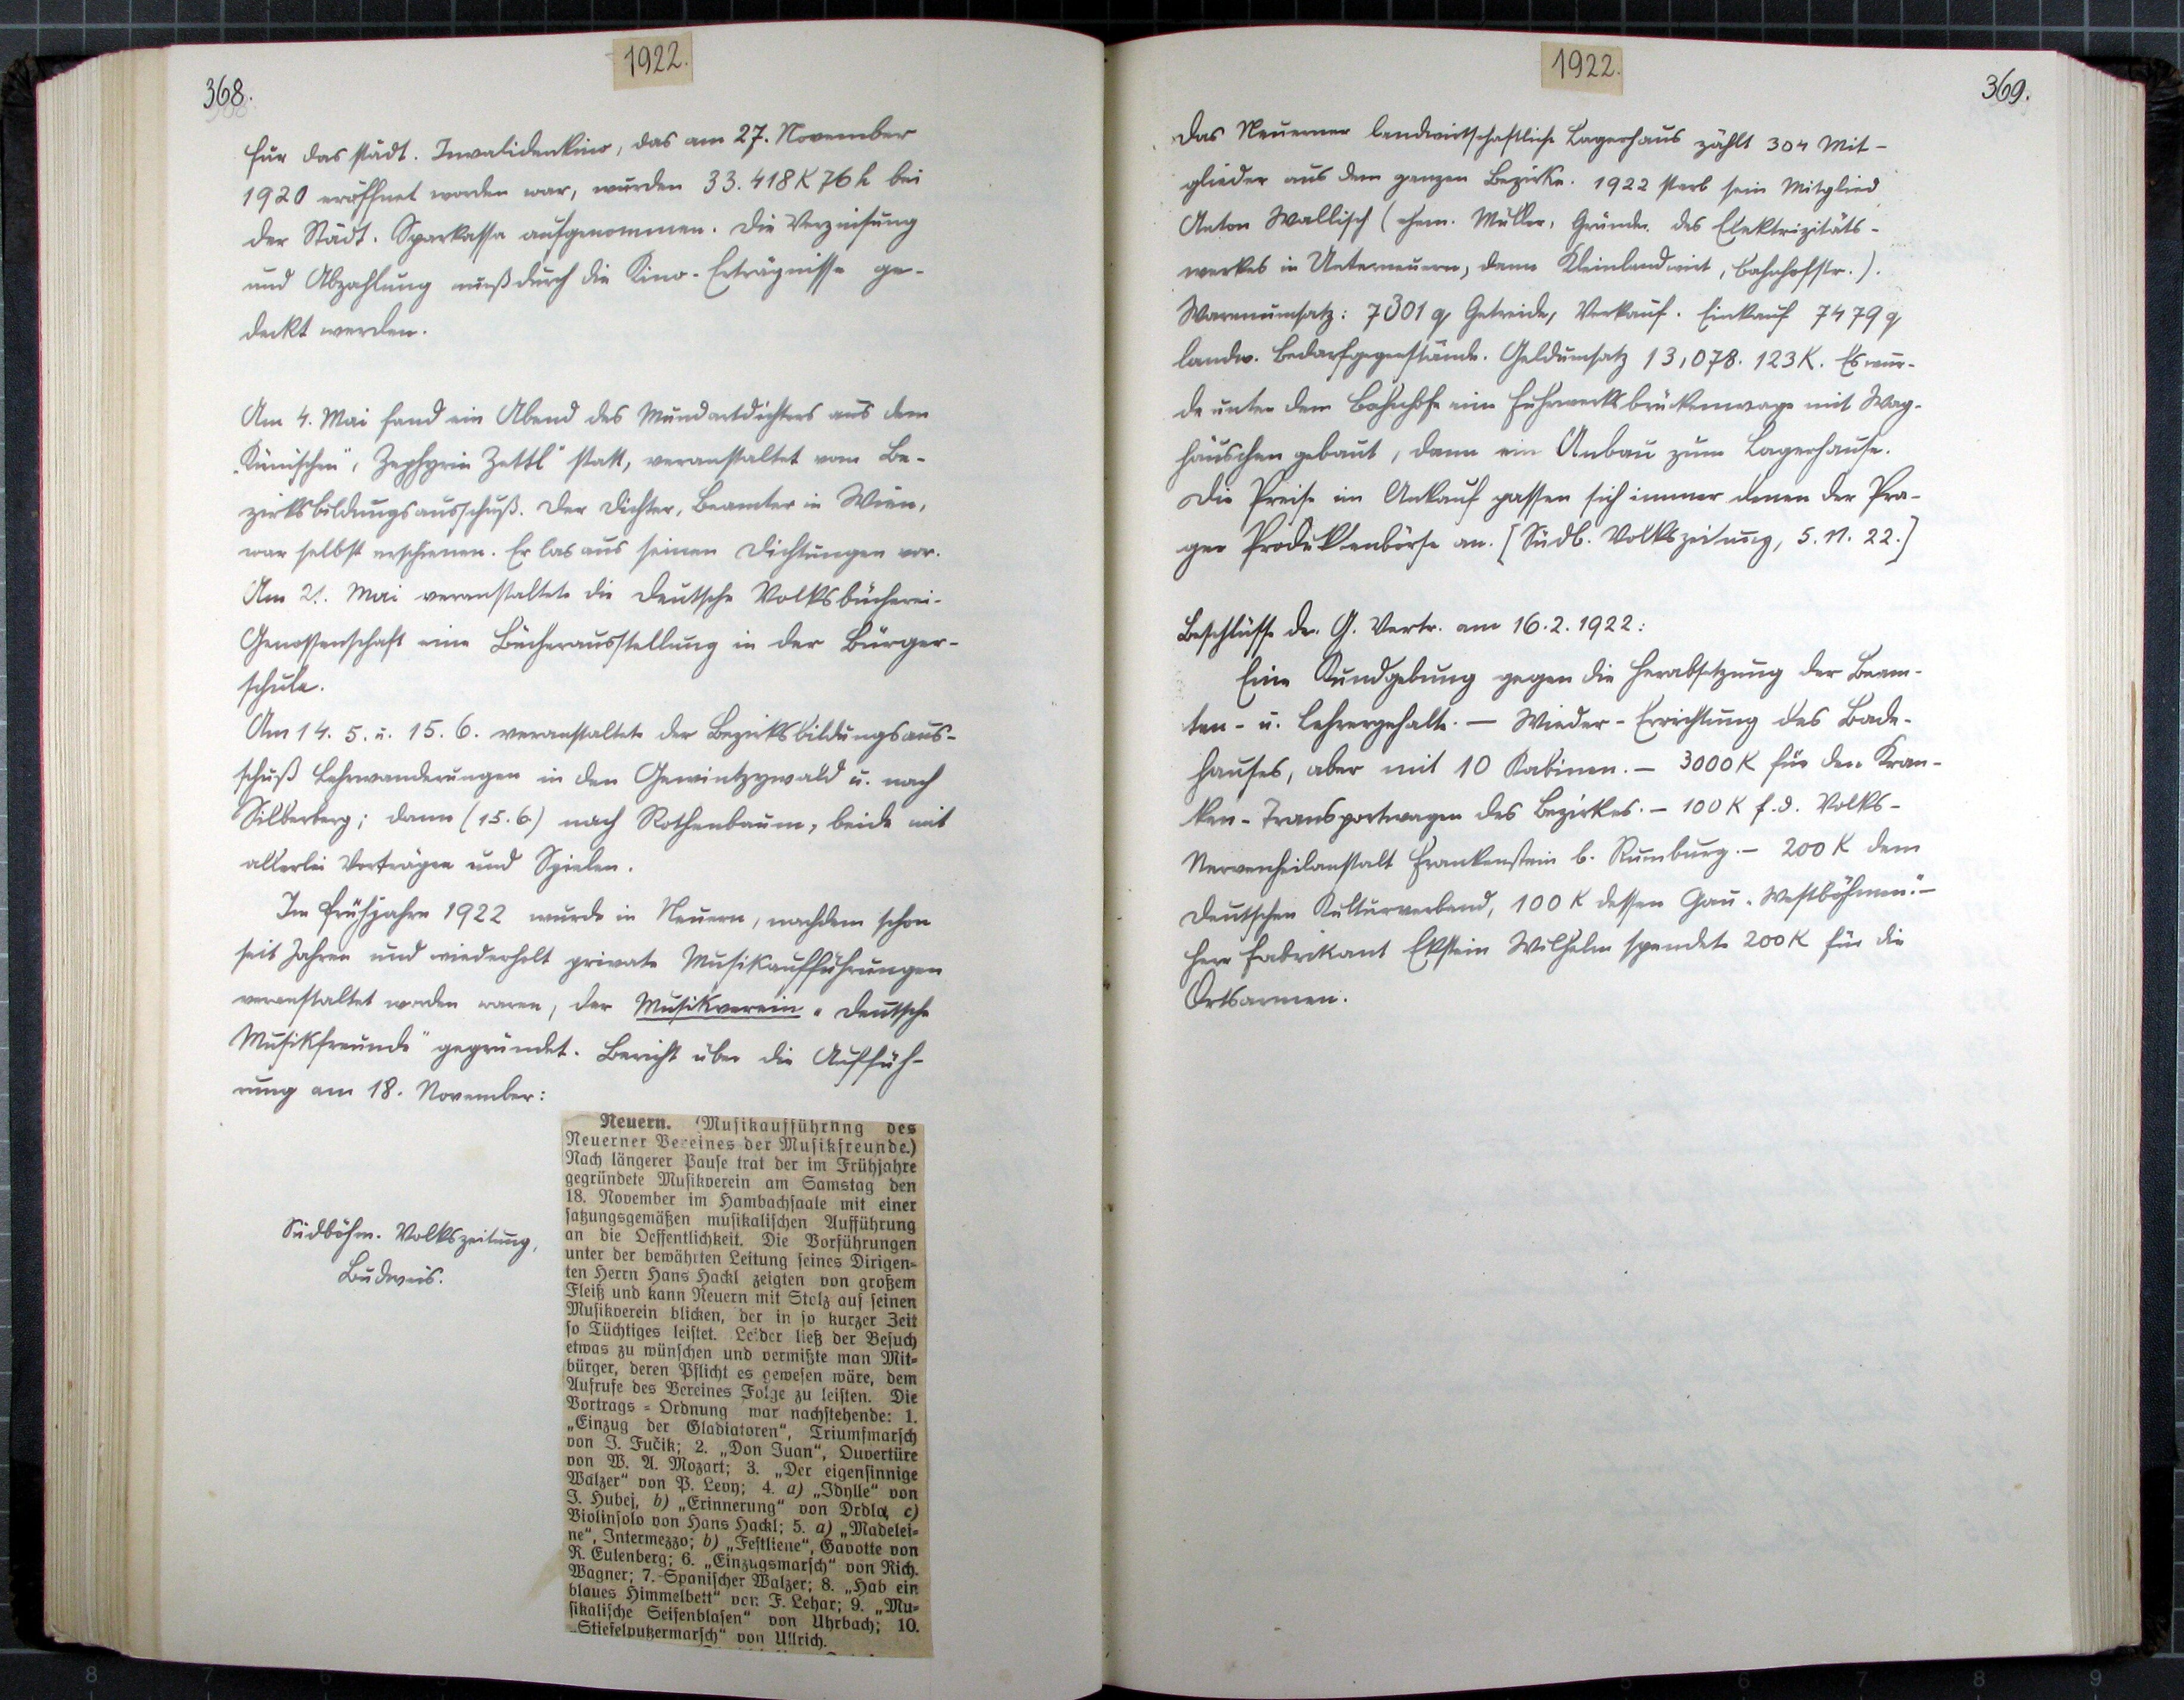 1922.
368.
Für das städt. Invalidenkino, das am 27. November
1920 eröffnet worden war, wurden 33.418 K 76 h bei
der Städt. Sparkassa aufgenommen. Die Verzinsung
und Abzahlung muß durch die Kino-Erträgnisse ge-
deckt werden.
Am 4. Mai fand ein Abend des Mundartdichters aus dem
„Künischen", Zephyrin Zettl" statt, veranstaltet vom Be-
zirksbildungsausschuß. Der Dichter, Beamter in Wien,
war selbst erschienen. Er las aus seinen Dichtungen vor.
Am 21. Mai veranstaltete die Deutsche Volksbücherei-
Genossenschaft eine Bücherausstellung in der Bürger-
schule.
Am 14. 5. u. 15. 6. veranstaltete der Bezirksbildungsaus-
schuß Lehrwanderungen in den Gewintzywald u. nach
Silberberg; dann (15. 6.) nach Rothenbaum, beide mit
allerlei Vorträgen und Spielen.
Im Frühjahre 1922 wurde in Neuern, nachdem schon
seit Jahren und wiederholt private Musikaufführungen
veranstaltet worden waren, der Musikverein „Deutsche
Musikfreunde" gegründet. Bericht über die Auffüh-
rung am 18. November:
Südböhm. Volkszeitung,
Budweis.
Neuern. (Musikaufführnng des
Neuerner Vereines der Musikfreunde.)
Nach längerer Pause trat der im Frühjahre
gegründete Musikverein am Samstag den
18. November im Hambachsaale mit einer
satzungsgemäßen musikalischen Aufführung
an die Oeffentlichkeit. Die Vorführungen
unter der bewährten Leitung seines Dirigen-
ten Herrn Hans Hackl zeigten von großem
Fleiß und kann Neuern mit Stolz auf seinen
Musikverein blicken, der in so kurzer Zeit
so Tüchtiges leistet. Leider ließ der Besuch
etwas zu wünschen und vermißte man Mit-
bürger, deren Pflicht es gewesen wäre, dem
Aufrufe des Vereines Folge zu leisten. Die
Vortrags-Ordnung war nachstehende: 1.
„Einzug der Gladiatoren", Triumfmarsch
von J. Fučik; 2. „Don Juan", Ouvertüre
von W. A. Mozart; 3. „Der eigensinnige
Walzer" von P. Levy; 4. a) „Idylle" von
J. Hubej, b) „Erinnerung" von Drdla, c)
Violinsolo von Hans Hackl; 5. a) „Madelei-
ne", Intermezzo; b) „Festliene", Gavotte von
R. Eulenberg; 6. „Einzugsmarsch" von Rich.
Wagner; 7. Spanischer Walzer; 8. „Hab ein
blaues Himmelbett" von F. Lehar; 9. „Mu-
sikalische Seifenblasen" von Uhrbach; 10.
„Stiefelputzermarsch" von Ullrich.
1922.
369.
Das Neuerner landwirtschaftliche Lagerhaus zählt 304 Mit-
glieder aus dem ganzen Bezirke. 1922 starb sein Mitglied
Anton Wallisch (ehem. Müller, Gründer des Elektrizitäts-
werkes in Unterneuern, dann Kleinlandwirt, Bahnhofstr.).
Warenumsatz: 7301 q Getreide, Verkauf. Einkauf 7479 q
landw. Bedarfsgegenstände. Geldumsatz 13,078.123 K. Es wur-
de unter dem Bahnhofe eine Fuhrwerksbrückenwage mit Wag-
häuschen gebaut, dann ein Anbau zum Lagerhause.
Die Preise im Ankauf passen sich immer denen der Pra-
ger Produktenbörse an. [Südb. Volkszeitung, 5. 11. 22.]
Beschlüsse der G. Vertr. am 16. 2. 1922:
Eine Kundgebung gegen die Herabsetzung der Beam-
ten- u. Lehrergehalte. — Wieder-Errichtung des Bade-
hauses, aber mit 10 Kabinen. — 3000 K für den Kran-
ken-Transportwagen des Bezirkes. — 100 K f. d. Volks-
Nervenheilanstalt Frankenstein b. Rumburg. — 200 K dem
Deutschen Kulturverband, 100 K dessen Gau „Westböhmen". —
Herr Fabrikant Ekstein Wilhelm spendete 200 K für die
Ortsarmen.
8 7 6 5 6 7 8 9